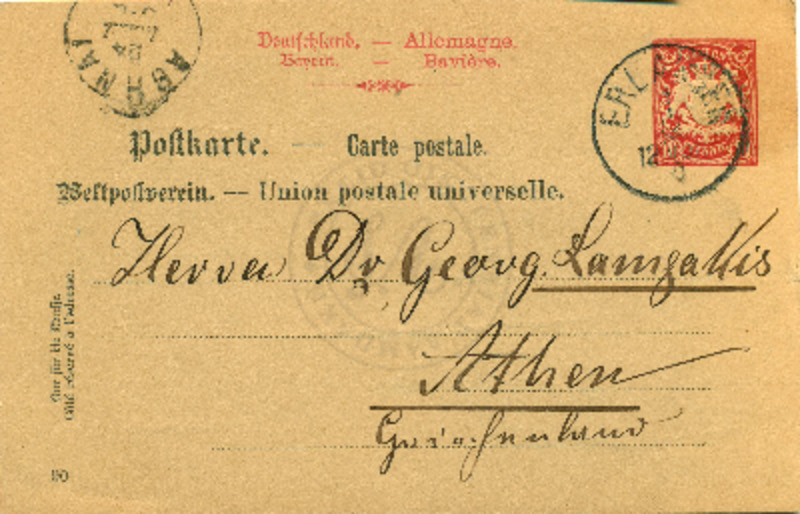 ΑΘΗΝΑΙ
Deutschland. — Allemagne.
Bayern. — Bavière.
ERLANGEN
12
Postkarte. — Carte postale.
Weltpostverein. — Union postale universelle.
Herrn Dr Georg Lamsakis
Athen
Griechenland
Nur für die Adresse.
Côté réservé à l'adresse.
90